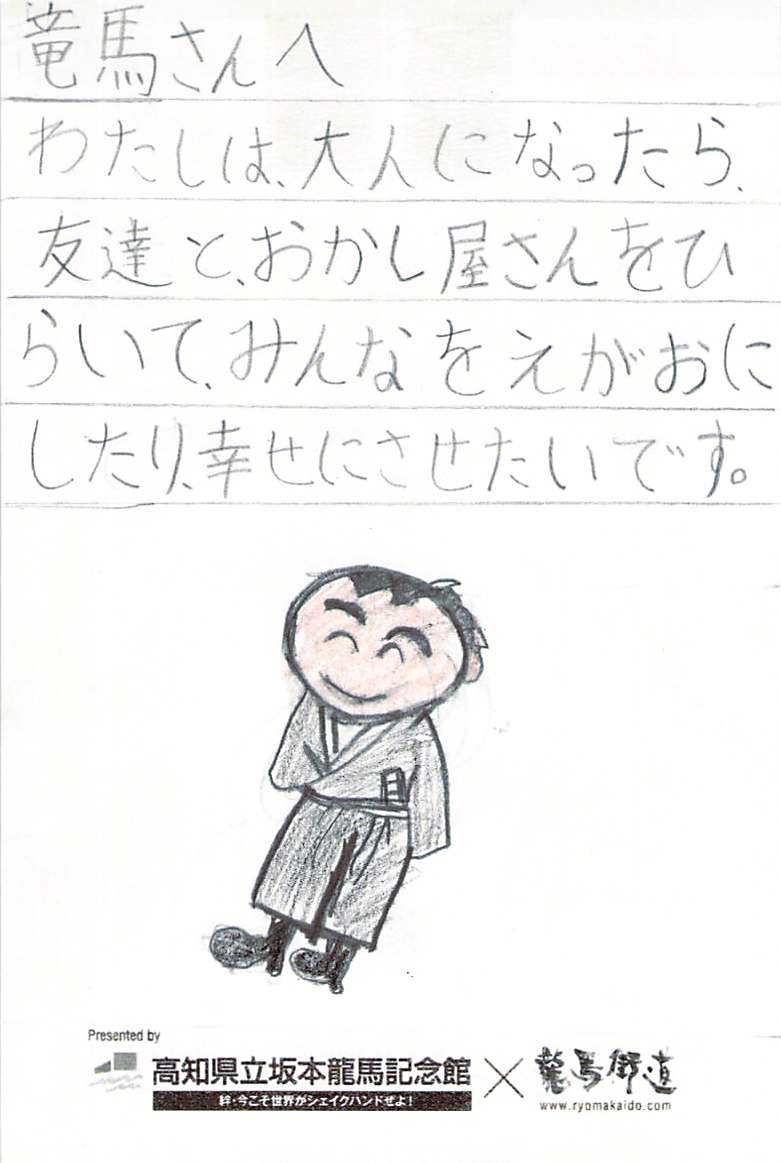 竜馬さんへ
わたしは、大人になったら、
友達と、おかし屋さんをひ
らいて、みんなをえがおに
したり、幸せにさせたいです。
Presented by
高知県立坂本龍馬記念館
絆・今こそ世界がシェイクハンドぜよ!
×
龍馬街道
www.ryomakaido.com